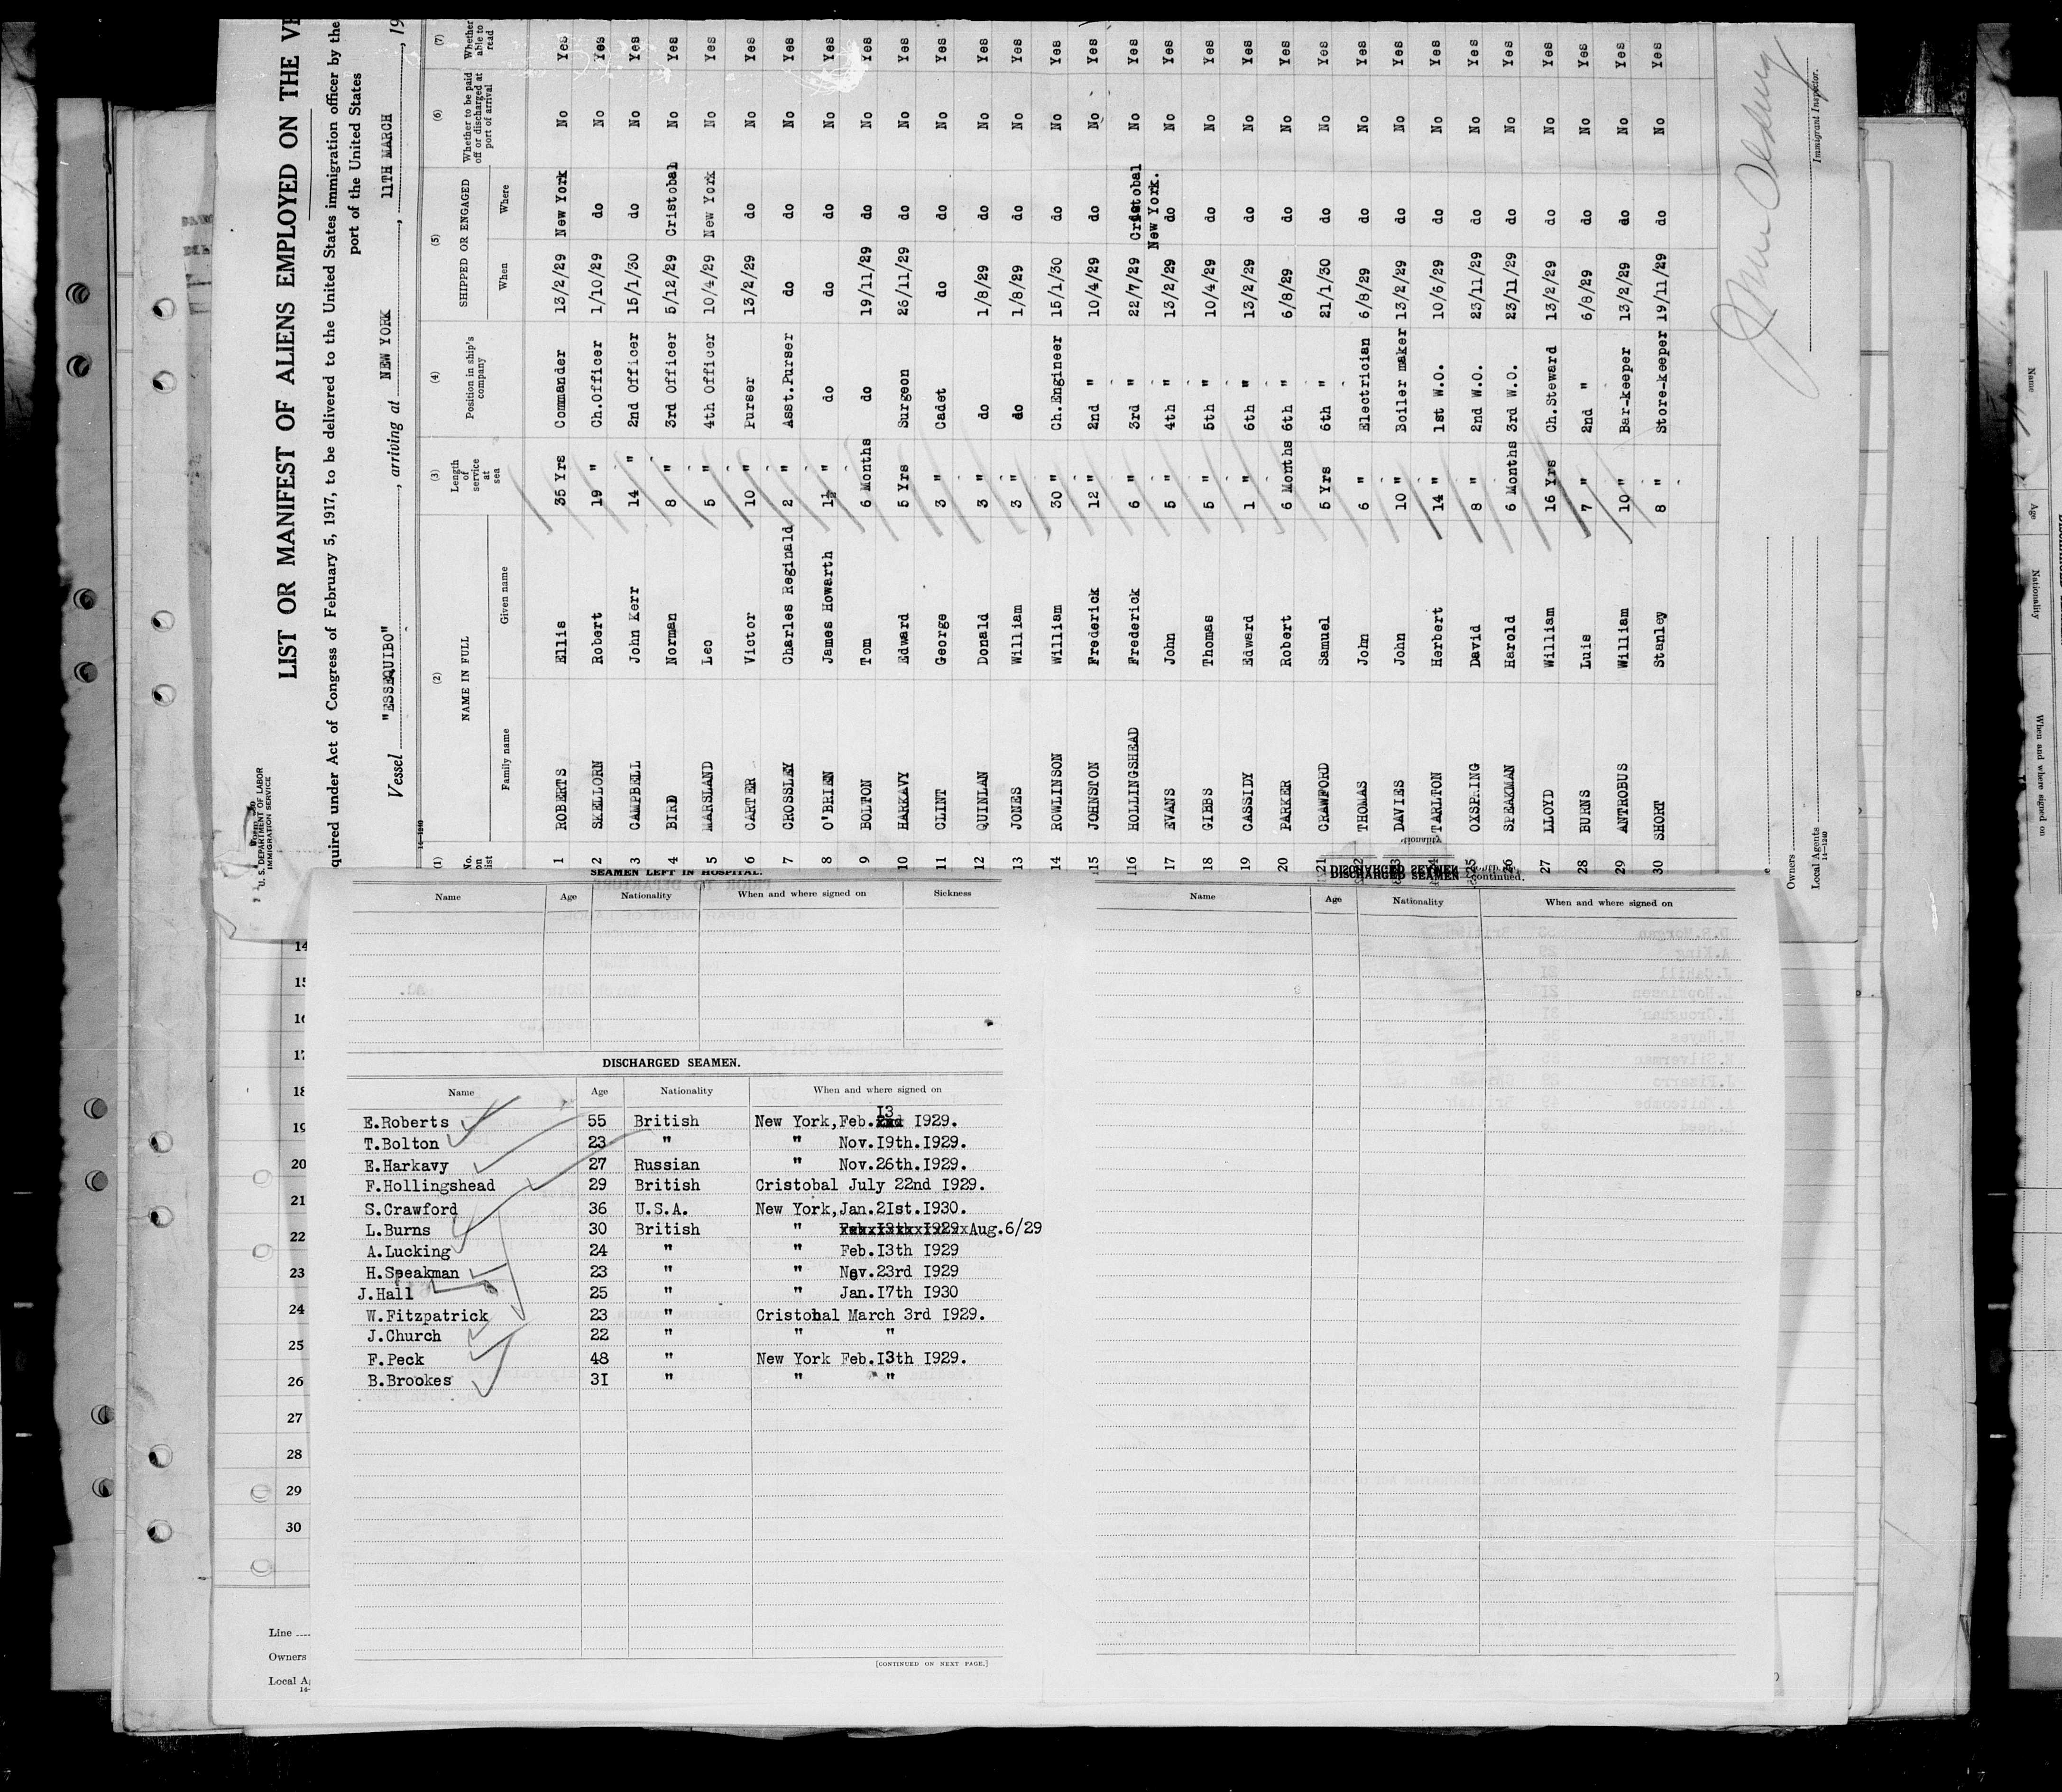 Form 680
U. S. DEPARTMENT OF LABOR
IMMIGRATION SERVICE
LIST OR MANIFEST OF ALIENS EMPLOYED ON THE
quired under Act of Congress of February 5, 1917, to be delivered to the United States immigration officer by the
port of the United States
Vessel "ESSEQUIBO", arriving at NEW YORK, 11TH MARCH, 19
14—1240
(1) (2) (3) (4) (5) (6) (7)
No. on list NAME IN FULL Length of service at sea Position in ship's company SHIPPED OR ENGAGED Whether to be paid off or discharged at port of arrival Whether able to read
Family name Given name When Where
1 ROBERTS Ellis 35 Yrs Commander 13/2/29 New York No Yes
2 SKELLORN Robert 19 " Ch.Officer 1/10/29 do No Yes
3 CAMPBELL John Kerr 14 " 2nd Officer 15/1/30 do No Yes
4 BIRD Norman 8 " 3rd Officer 5/12/29 Cristobal No Yes
5 MARSLAND Leo 5 " 4th Officer 10/4/29 New York No Yes
6 CARTER Victor 10 " Purser 13/2/29 do No Yes
7 CROSSLEY Charles Reginald 2 " Asst.Purser do do No Yes
8 O'BRIEN James Howarth 1½ " do do do No Yes
9 BOLTON Tom 6 Months do 19/11/29 do No Yes
10 HARKAVY Edward 5 Yrs Surgeon 26/11/29 do No Yes
11 CLINT George 3 " Cadet do do No Yes
12 QUINLAN Donald 3 " do 1/8/29 do No Yes
13 JONES William 3 " do 1/8/29 do No Yes
14 ROWLINSON William 30 " Ch.Engineer 15/1/30 do No Yes
15 JOHNSTON Frederick 12 " 2nd " 10/4/29 do No Yes
16 HOLLINGSHEAD Frederick 6 " 3rd " 22/7/29 Cristobal No Yes
New York.
17 EVANS John 5 " 4th " 13/2/29 do No Yes
18 GIBBS Thomas 5 " 5th " 10/4/29 do No Yes
19 CASSIDY Edward 1 " 6th " 13/2/29 do No Yes
20 PARKER Robert 6 Months 6th " 6/8/29 do No Yes
21 CRAWFORD Samuel 5 Yrs 6th " 21/1/30 do No Yes
22 THOMAS John 6 " Electrician 6/8/29 do No Yes
23 DAVIES John 10 " Boiler maker 13/2/29 do No Yes
24 TARLTON Herbert 14 " 1st W.O. 10/6/29 do No Yes
25 OXSPRING David 8 " 2nd W.O. 23/11/29 do No Yes
26 SPEAKMAN Harold 6 Months 3rd W.O. 23/11/29 do No Yes
27 LLOYD William 16 Yrs Ch.Steward 13/2/29 do No Yes
28 BURNS Luis 7 " 2nd " 6/8/29 do No Yes
29 ANTROBUS William 10 " Bar-keeper 13/2/29 do No Yes
30 SHORT Stanley 8 " Store-keeper 19/11/29 do No Yes
Immigrant Inspector.
Owners
Local Agents
14—1240
SEAMEN LEFT IN HOSPITAL.
Name Age Nationality When and where signed on Sickness
DISCHARGED SEAMEN.
Name Age Nationality When and where signed on
E.Roberts 55 British New York,Feb. 13 2nd I929.
T.Bolton 23 " " Nov.I9th.I929.
E.Harkavy 27 Russian " Nov.26th.I929.
F.Hollingshead 29 British Cristobal July 22nd I929.
S.Crawford 36 U.S.A. New York,Jan.2Ist.I930.
L.Burns 30 British " Feb.I3th I929 Aug.6/29
A.Lucking 24 " " Feb.I3th I929
H.Speakman 23 " " Nov.23rd I929
J.Hall 25 " " Jan.I7th I930
W.Fitzpatrick 23 " Cristobal March 3rd I929.
J.Church 22 " " "
F.Peck 48 " New York Feb.I3th I929.
B.Brookes 3I " " "
[CONTINUED ON NEXT PAGE.]
DISCHARGED SEAMEN continued.
Name Age Nationality When and where signed on
14
15
16
17
18
19
20
21
22
23
24
25
26
27
28
29
30
Line
Owners
Local A
Name
Age
Nationality
When and where signed on